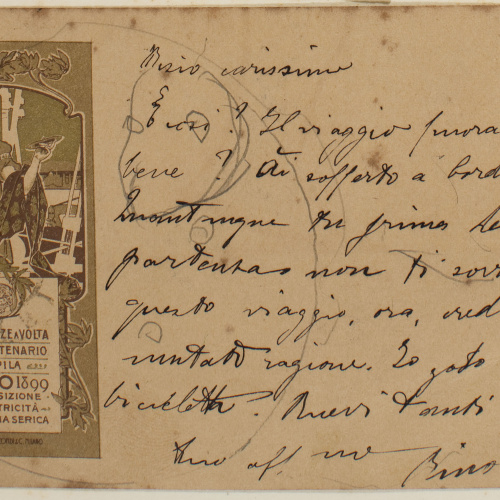 ZE A VOLTA
TENARIO
PILA
O 1899
SIZIONE
TRICITÀ
IA SERICA
carissimo
E così? Il viaggio fuora
bene? Ài sofferto a bord
Quantunque tu prima
partenza non ti sorr
questo viaggio, ora, cred
mutato ragione. Io godo
bicicletta. Ricevi tanti
tuo aff. mo